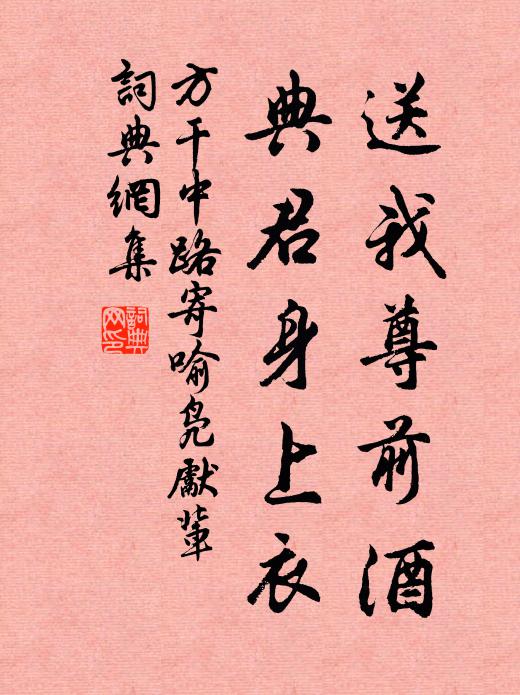 送我尊前酒
典君身上衣
方干中路寄喻凫獻軰
詞典網集
詞典网印